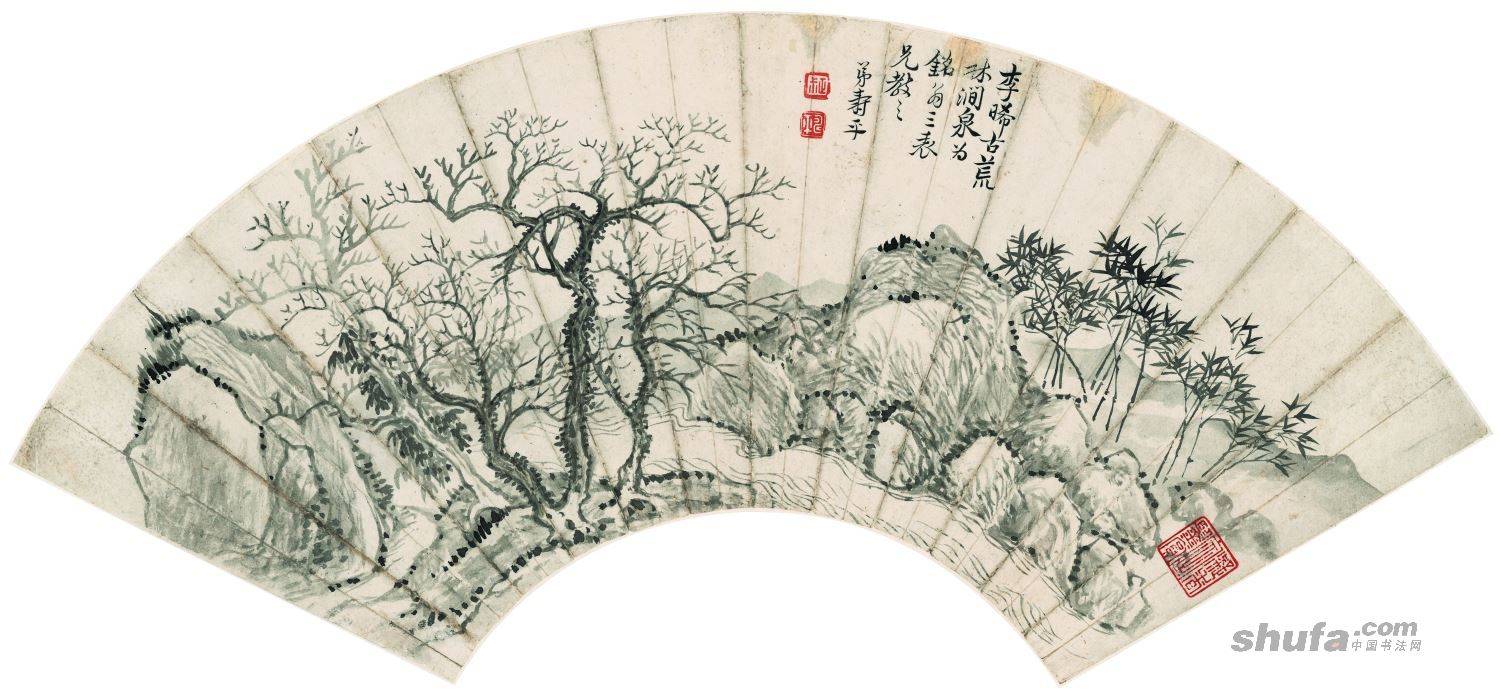 李晞古荒
林澗泉为
銘翁三表
兄教之
弟壽平
shufa.com
中国书法网